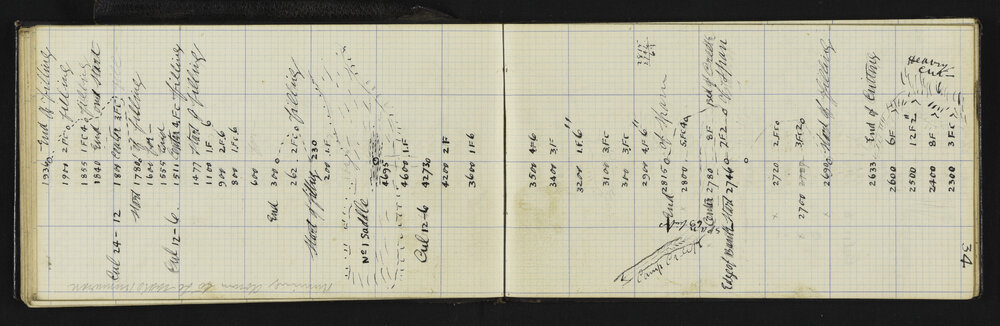 1936.0 End of filling
1900 2Fc0 filling
1855 1Fc4 filling
1840 End and Start
Cul 24-12 1814 Center 3Fc
Start 1780 of filling
1604 For
1555 End
Cul 12-6. 1511 Center 4Fc filling
1477 Start of filling
1100 1F 6
900 2F.6
800 1F.6
600
End 300 0
262 2Fc0 filling
Start of filling 230
200 1F
No 1 Saddle
4695
4600 1.F
Cul 12-6 4273.0
4200 2F
3600 1F6
3500 4F6
3400 3F
3200 1F.6"
3100 3Fc
300 3Fc
2900 4F.6"
End 2815.0 Of Span
2800 5Fc4
Center 2780 8F
Edge of Bank Start 2746.0 7F2 0 Of Span
2720 2Fc0
2700 3Fc20
2690 Start of filling
2633 End of Cutting
2600 6F
2500 12F2"
Heavy Cut
2400 8F
2300 3Fc
34